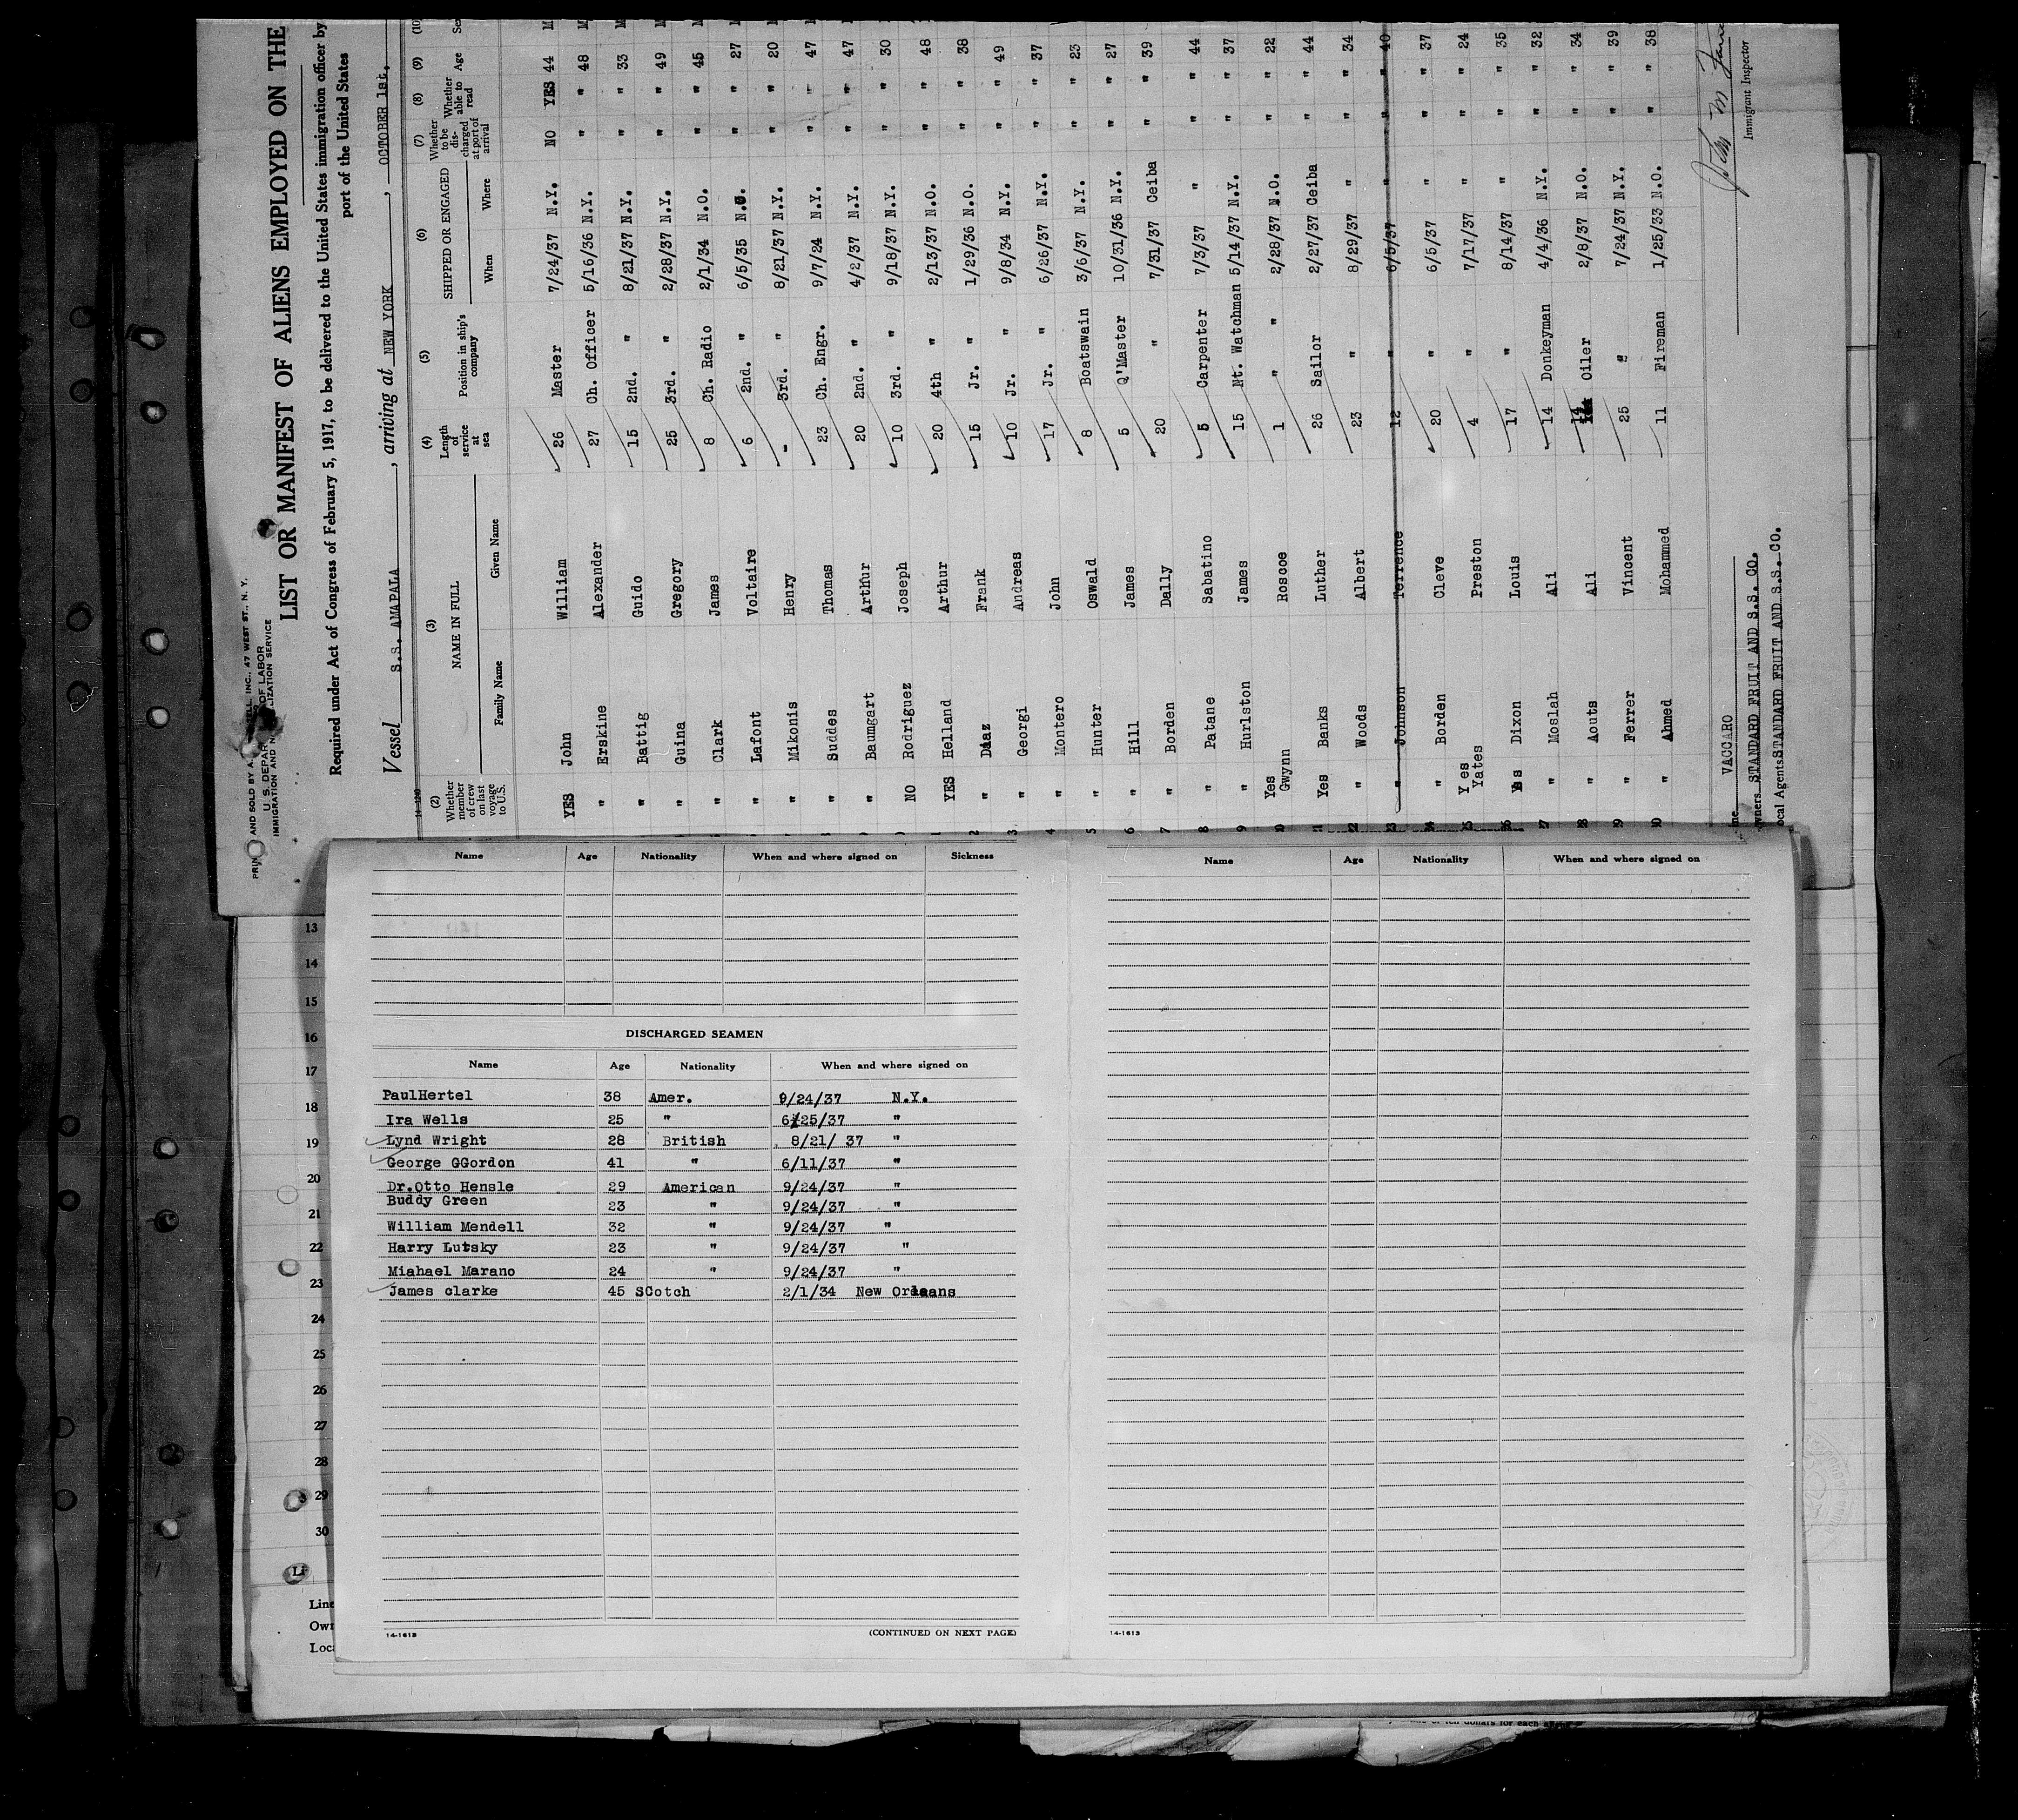 PRIN AND SOLD BY A. ELL, INC., 47 WEST ST., N. Y.
U. S. DEPAR OF LABOR
IMMIGRATION AND N LIZATION SERVICE
LIST OR MANIFEST OF ALIENS EMPLOYED ON THE
Required under Act of Congress of February 5, 1917, to be delivered to the United States immigration officer by
port of the United States
Vessel S.S. AMAPALA, arriving at NEW YORK, OCTOBER 1st.
14-1240
(2) Whether member of crew on last voyage to U.S. (3) NAME IN FULL Family Name Given Name (4) Length of service at sea (5) Position in ship's company (6) SHIPPED OR ENGAGED When Where (7) Whether to be discharged at port of arrival (8) Whether able to read (9) Age (10) Se
YES John William 26 Master 7/24/37 N.Y. NO YES 44 M
" Erskine Alexander 27 Ch. Officer 5/16/36 N.Y. " " 48 M
" Battig Guido 15 2nd. " 8/21/37 N.Y. " " 33 M
" Guina Gregory 25 3rd. " 2/28/37 N.Y. " " 49 M
" Clark James 8 Ch. Radio 2/1/34 N.O. " " 45 M
" Lafont Voltaire 6 2nd. " 6/5/35 N.O. " " 27
" Mikonis Henry - 3rd. " 8/21/37 N.Y. " " 20
" Suddes Thomas 23 Ch. Engr. 9/7/24 N.Y. " " 47
" Baumgart Arthur 20 2nd. " 4/2/37 N.Y. " " 47
NO Rodriguez Joseph 10 3rd. " 9/18/37 N.Y. " " 30
YES Helland Arthur 20 4th " 2/13/37 N.O. " " 48
2 " Diaz Frank 15 Jr. " 1/29/36 N.O. " " 38
3 " Georgi Andreas 10 Jr. " 9/8/34 N.Y. " " 49
4 " Montero John 17 Jr. " 6/26/37 N.Y. " " 37
5 " Hunter Oswald 8 Boatswain 3/6/37 N.Y. " " 23
6 " Hill James 5 Q'Master 10/31/36 N.Y. " " 27
7 " Borden Dally 20 " 7/31/37 Ceiba " " 39
8 " Patane Sabatino 5 Carpenter 7/3/37 " " " 44
9 " Hurlston James 15 Nt. Watchman 5/14/37 N.Y. " " 37
10 Yes Gwynn Roscoe 1 " " 2/28/37 N.O. " " 22
11 Yes Banks Luther 26 Sailor 2/27/37 Ceiba " " 44
12 " Woods Albert 23 " 8/29/37 " " " 34
13 " Johnson Terrence 12 " 6/5/37 " " " 40
14 " Borden Cleve 20 " 6/5/37 " " " 37
15 Yes Yates Preston 4 " 7/17/37 " " " 24
16 Yes Dixon Louis 17 " 8/14/37 " " " 35
17 " Moslah Ali 14 Donkeyman 4/4/36 N.Y. " " 32
18 " Aouts Ali 14 Oiler 2/8/37 N.O. " " 34
19 " Ferrer Vincent 25 " 7/24/37 N.Y. " " 39
" Ahmed Mohammed 11 Fireman 1/25/33 N.O. " " 38
ine VACCARO
wners STANDARD FRUIT AND S.S. CO.
ocal Agents STANDARD FRUIT AND S.S. CO.
Immigrant Inspector
Name Age Nationality When and where signed on Sickness
DISCHARGED SEAMEN
Name Age Nationality When and where signed on
PaulHertel 38 Amer. 9/24/37 N.Y.
Ira Wells 25 " 6/25/37 "
Lynd Wright 28 British 8/21/ 37 "
George GGordon 41 " 6/11/37 "
Dr.Otto Hensle 29 American 9/24/37 "
Buddy Green 23 " 9/24/37 "
William Mendell 32 " 9/24/37 "
Harry Lutsky 23 " 9/24/37 "
Miahael Marano 24 " 9/24/37 "
James clarke 45 SCotch 2/1/34 New Orleans
14-1613 (CONTINUED ON NEXT PAGE)
Name Age Nationality When and where signed on
14-1613
13
14
15
16
17
18
19
20
21
22
23
24
25
26
27
28
29
30
Li
Line
Own
Loca